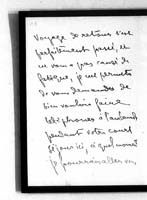 voyage de retour s'est
parfaitement passé, et
ne vous a pas causé de
fatigue, je me permets
de vous demander de
bien vouloir faire
téléphoner à l'
pendant votre court
séjour ici, à quel moment
je pourrais aller vous